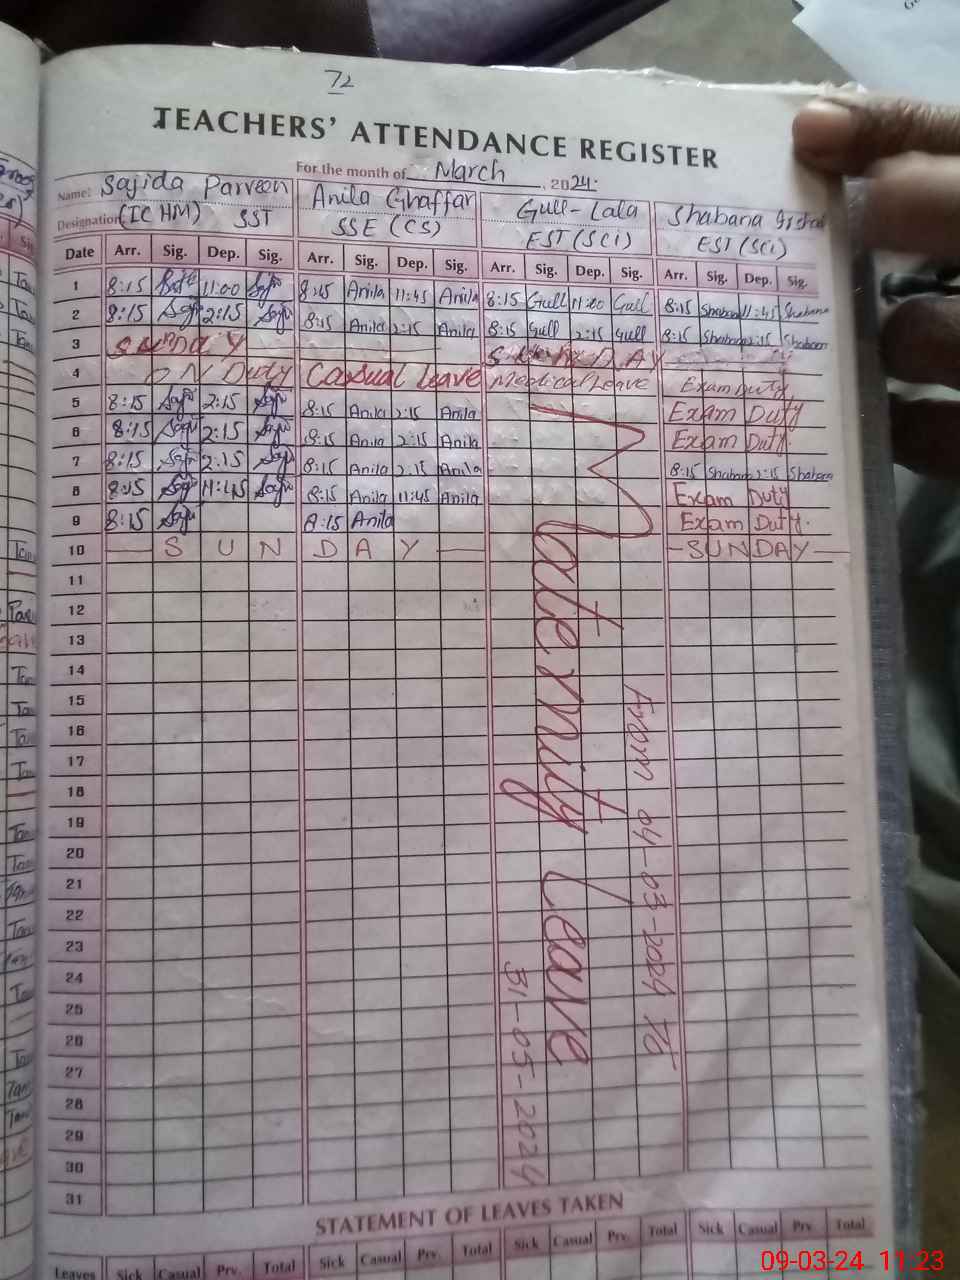 72
TEACHERS' ATTENDANCE REGISTER
For the month of March, 2024.
Name: Sajida Parveen Anila Ghaffar Gull-Lala Shabana
Designation (IC HM) SST SSE (CS) EST (SCI) EST (SCI)
Date Arr. Sig. Dep. Sig. Arr. Sig. Dep. Sig. Arr. Sig. Dep. Sig. Arr. Sig. Dep. Sig.
1 8:15 11:00 8:15 Anila 11:45 Anila 8:15 Gull 11:00 Gull 8:15 Shabana 11:45 Shabana
2 8:15 2:15 8:15 Anila 2:15 Anila 8:15 Gull 2:15 Gull 8:15 Shabana 2:15 Shabana
3 SUNDAY SUNDAY
4 ON Duty Casual Leave Medical Leave Exam Duty
5 8:15 2:15 8:15 Anila 2:15 Anila Exam Duty
6 8:15 2:15 8:15 Anila 2:15 Anila Exam Duty
7 8:15 2:15 8:15 Anila 2:15 Anila 8:15 Shabana 2:15 Shabana
8 8:15 11:45 8:15 Anila 11:45 Anila Exam Duty
9 8:15 8:15 Anila Exam Duty
10 — S U N D A Y — — SUNDAY —
11
12
13
14
15
16
17
18
19
20
21
22
23
24
25
26
27
28
29
30
31
Maternity Leave
From 04-03-2024 To
31-05-2024
STATEMENT OF LEAVES TAKEN
Leaves Sick Casual Prv. Total Sick Casual Prv. Total Sick Casual Prv. Total Sick Casual Prv. Total
09-03-24 11:23